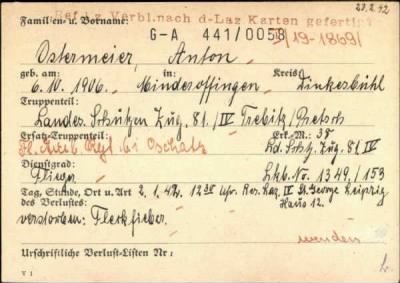 28.2.42
Ref. f. Verbl. nach d-Laz Karten gefertigt
Familien- u. Vorname: G-A 441/0058 B/19-1869/
Ostermeier, Anton
geb. am: Kreis
6.10.1906. Mindersoffingen, Dinkesbühl
Truppenteil:
Landes. Schützen Zug. 81./IV Trebitz/Pretsch
Ersatz-Truppenteil: Erk.-M.: 38
Fl. Ausb. Rgt. bei Oschatz Ld. Schtz. Zug. 81 IV
Dienstgrad:
Flieger Lkb. No 1349/153
Tag, Stunde, Ort u. Art 2.1.42. 12 30 Uhr, Res. Laz. IV St. George Leipzig
des Verlustes: Haus 12.
verstorben: Fleckfieber.
wenden
Urschriftliche Verlust-Listen Nr:
V 1